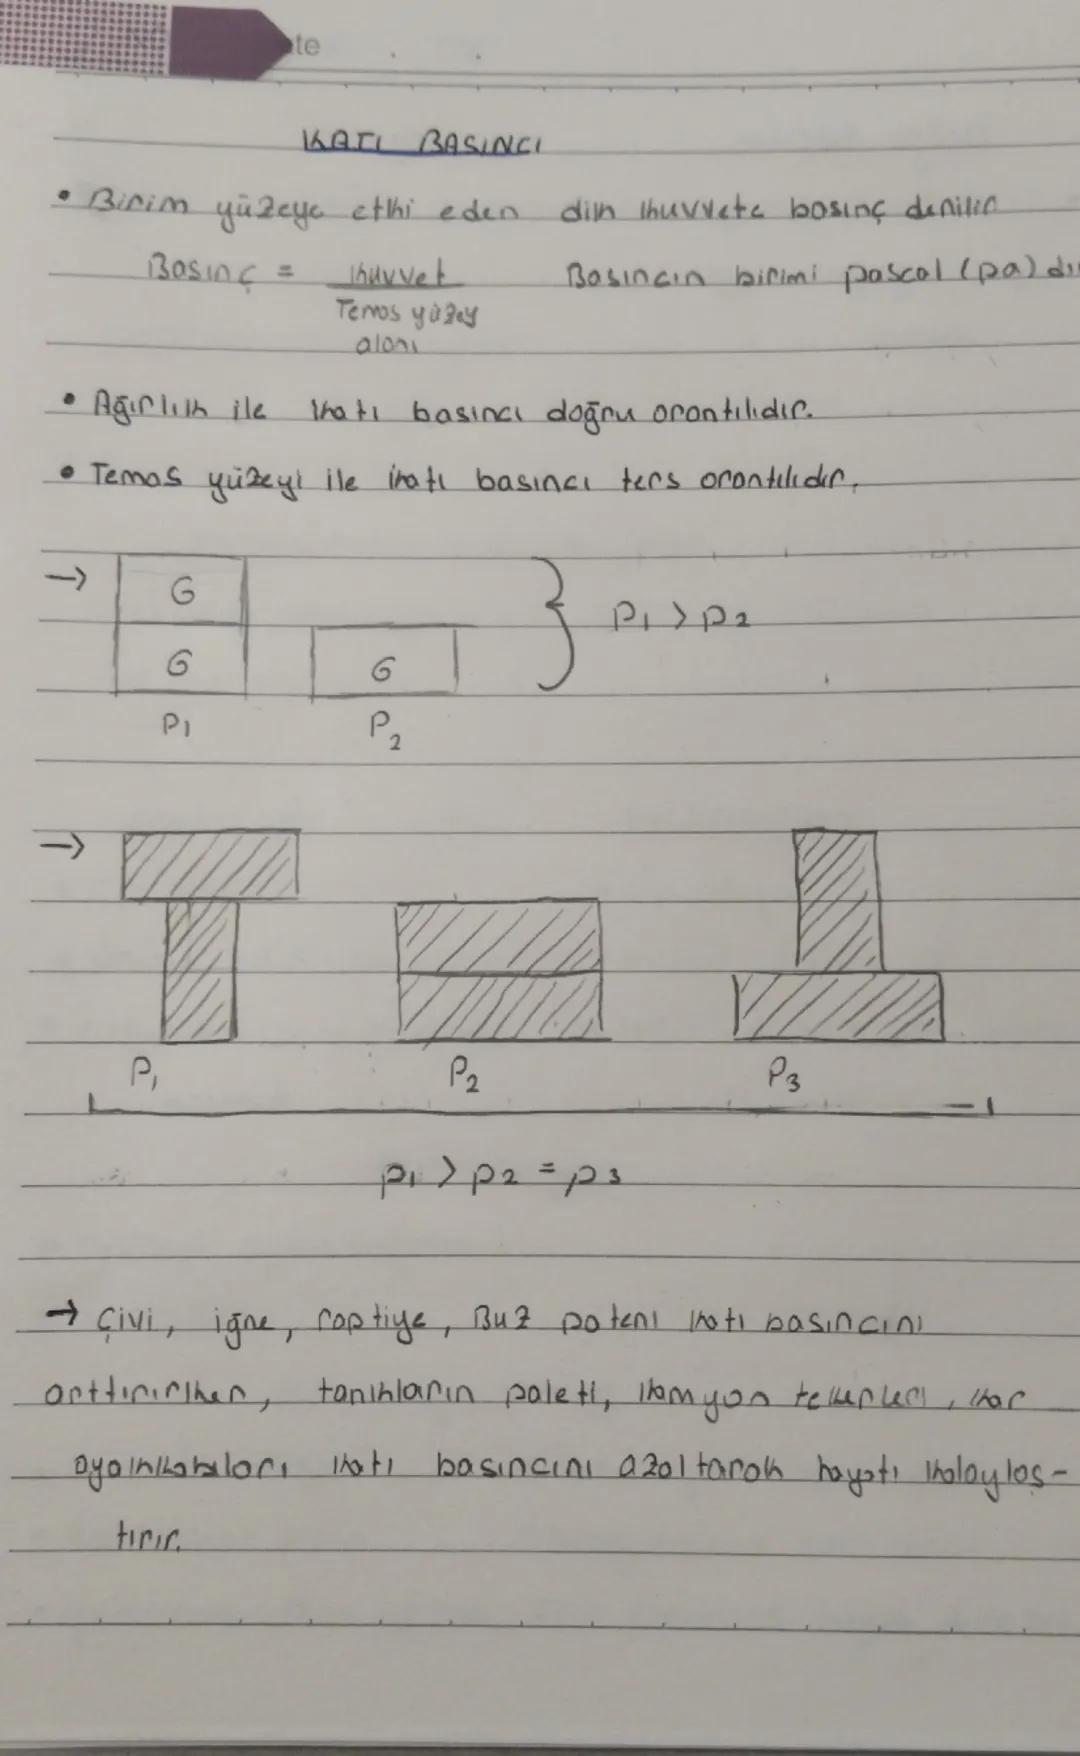 te
KATI BASINCI
• Birim yüzeye etki eden dik kuvvete basınç denilir
Basınç = kuvvet Basıncın birimi pascal (pa) dır
Temas yüzey
alanı
• Ağırlık ile katı basıncı doğru orantılıdır.
• Temas yüzeyi ile katı basıncı ters orantılıdır.
→ G
P1 > P2
G G
P1 P2
→
P1 P2 P3
P1 > P2 = P3
→ Çivi, iğne, raptiye, Buz pateni katı basıncını
arttırırken, tankların paleti, kamyon tekerleri, kar
ayakkabıları katı basıncını azaltarak hayatı kolaylaş-
tırır.